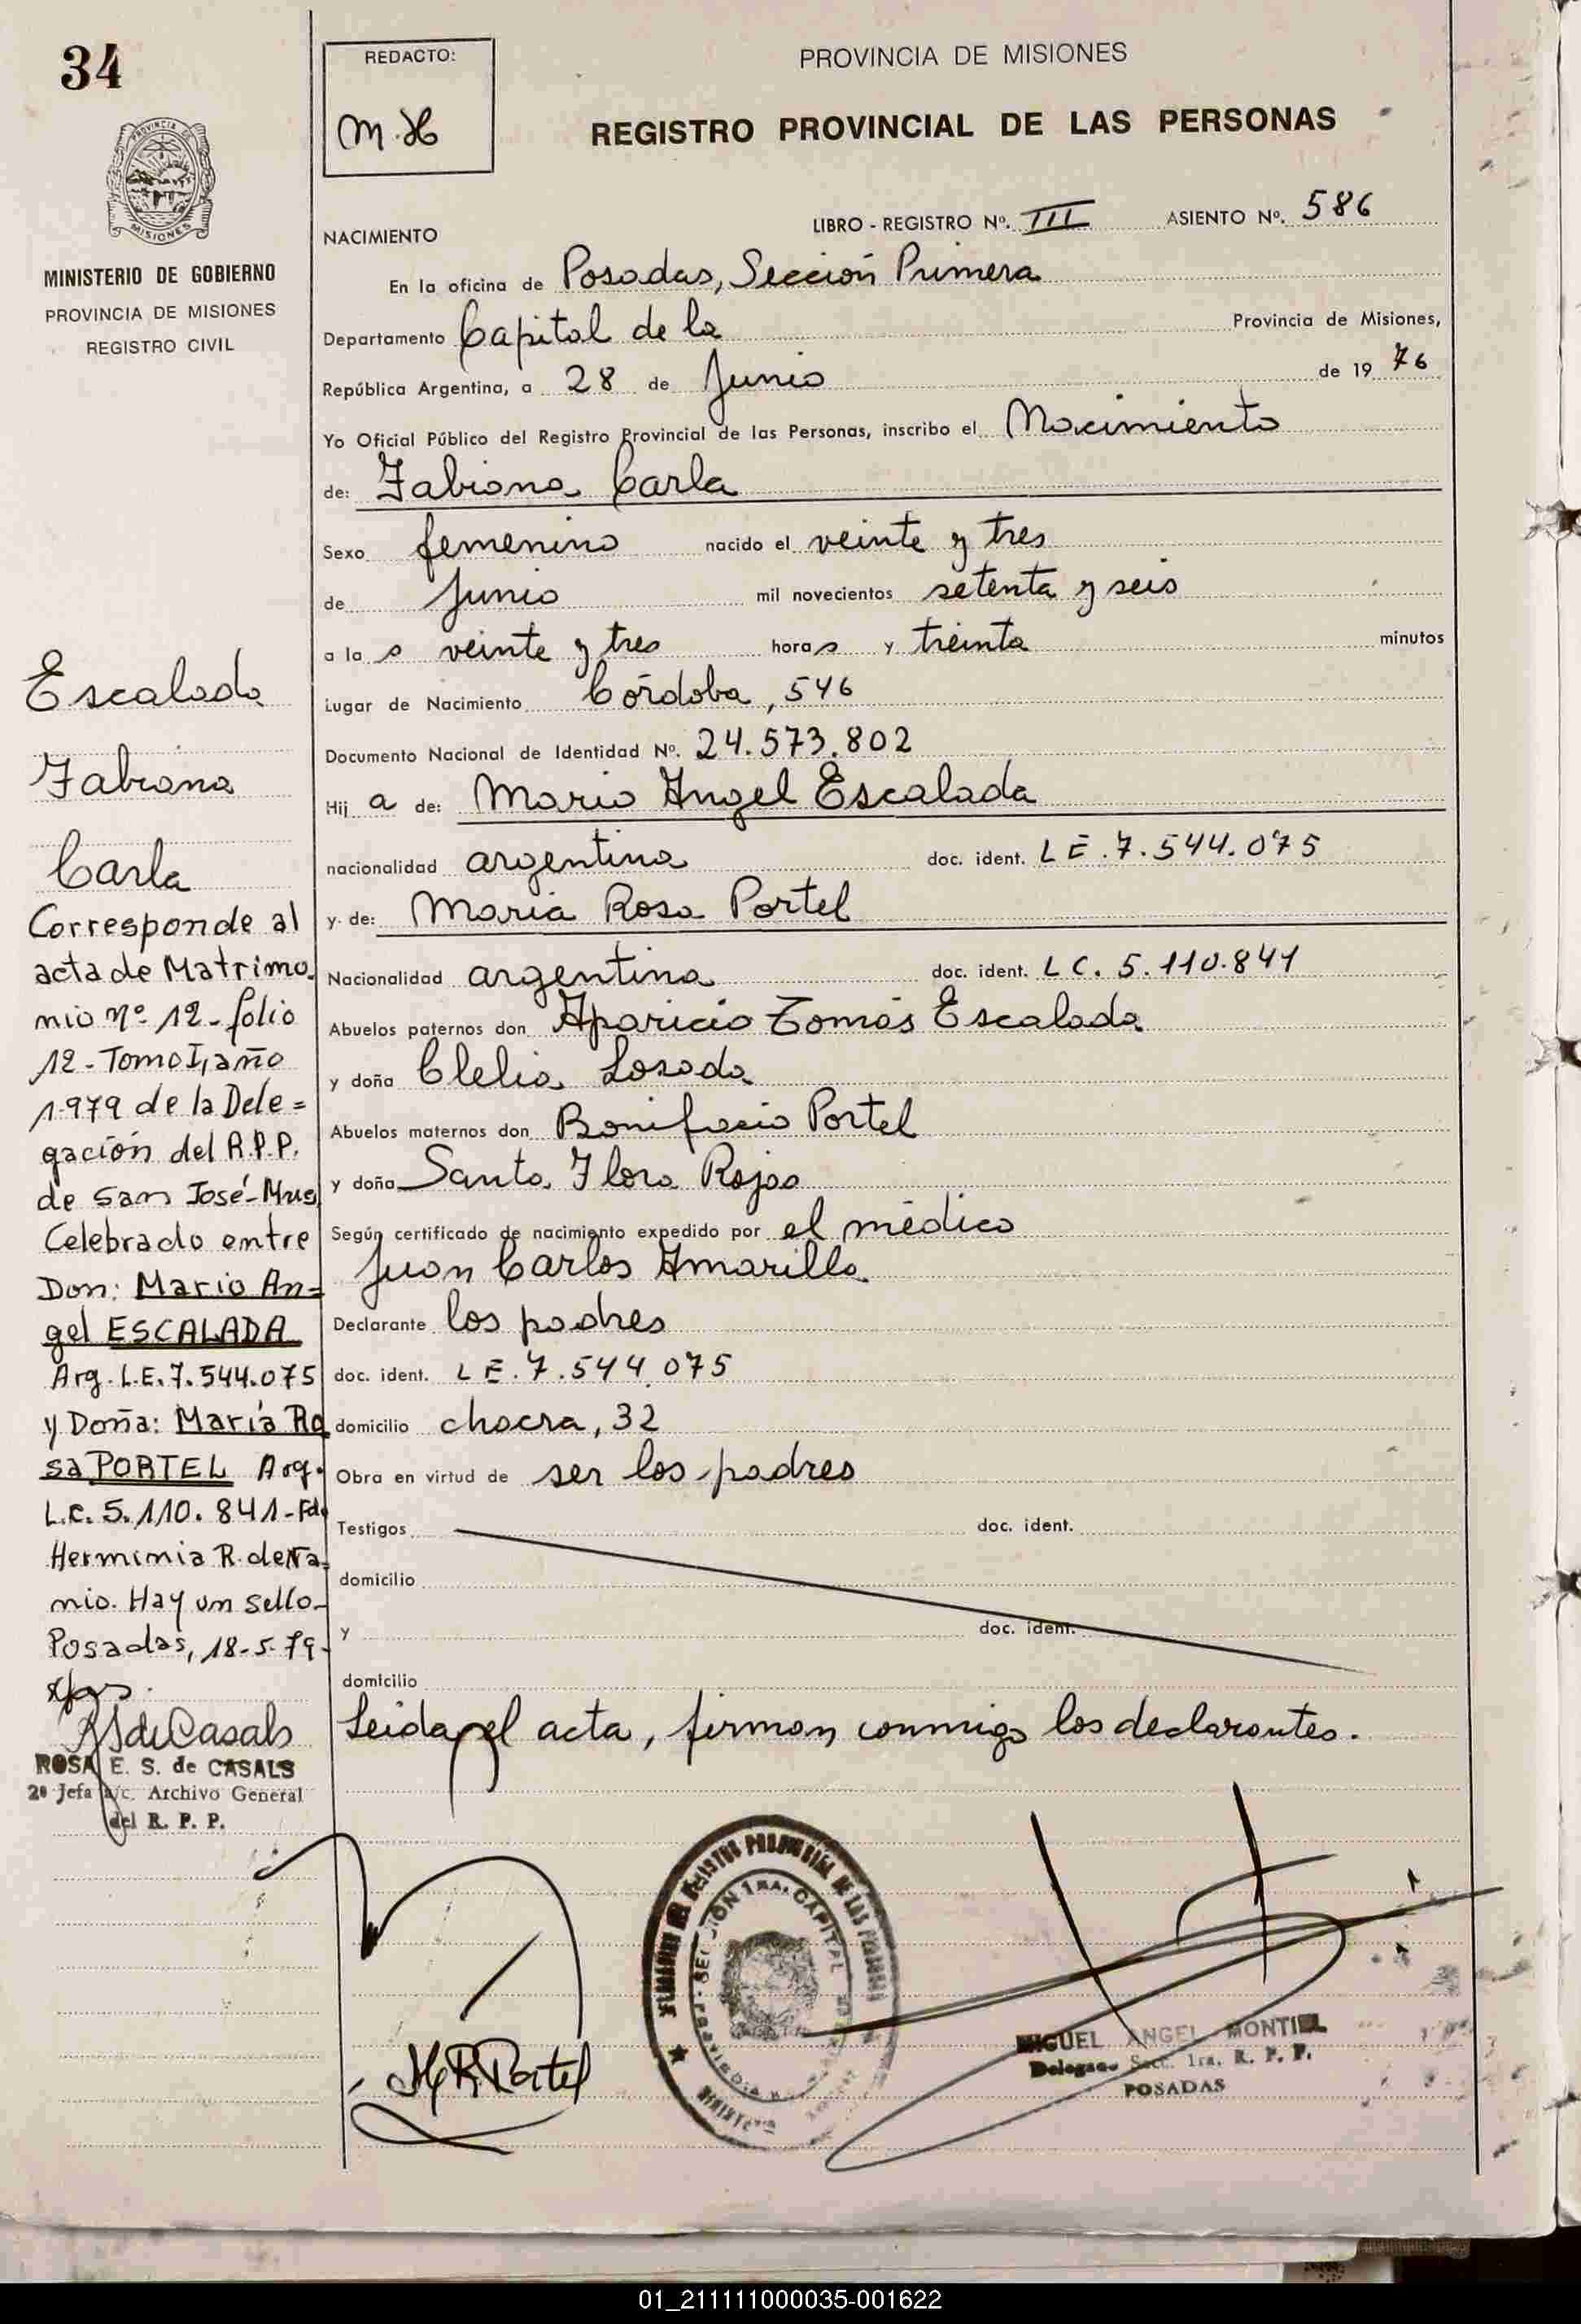 34
REDACTO:
M.H
PROVINCIA DE MISIONES
REGISTRO PROVINCIAL DE LAS PERSONAS
PROVINCIA DE
MISIONES
MINISTERIO DE GOBIERNO
PROVINCIA DE MISIONES
REGISTRO CIVIL
LIBRO - REGISTRO Nº. III ASIENTO Nº. 586
NACIMIENTO
En la oficina de Posadas, Sección Primera
Departamento Capital de la Provincia de Misiones,
República Argentina, a 28 de Junio de 19 76
Yo Oficial Público del Registro Provincial de las Personas, inscribo el Nacimiento
de: Fabiana Carla
Sexo femenino nacido el veinte y tres
de Junio mil novecientos setenta y seis
a la s veinte y tres horas y treinta minutos
Lugar de Nacimiento Córdoba, 546
Documento Nacional de Identidad Nº. 24.573.802
Hij a de: Mario Angel Escalada
nacionalidad argentina doc. ident. LE.7.544.075
y de: María Rosa Portel
Nacionalidad argentina doc. ident. LC. 5.110.841
Abuelos paternos don Aparicio Tomás Escalada
y doña Clelia Losada
Abuelos maternos don Bonifacio Portel
y doña Santa Flora Rojas
Según certificado de nacimiento expedido por el médico
Juan Carlos Amarilla
Declarante los padres
doc. ident. LE.7.544.075
domicilio chacra, 32
Obra en virtud de ser los padres
Testigos doc. ident.
domicilio
y doc. ident.
domicilio
Leida el acta, firman conmigo los declarantes.
Escalada
Fabiana
Carla
Corresponde al
acta de Matrimo
nio nº 12 - folio
12 - Tomo I, año
1.979 de la Dele=
gación del R.P.P.
de San José - Mnes
Celebrado entre
Don: Mario An=
gel ESCALADA
Arg. L.E. 7.544.075
y Doña: María Ro
sa PORTEL Arg.
L.C. 5.110.841 - Fdo
Herminia R. de
mio. Hay un sello-
Posadas, 18-5-79-
RSdeCasals
ROSA E. S. de CASALS
2ª Jefa a/c. Archivo General
del R. P. P.
M R Portel
SECCION 1RA. CAPITAL
MIGUEL ANGEL MONTIEL
Delegado Secc. 1ra. R. P. P.
POSADAS
01_211111000035-001622